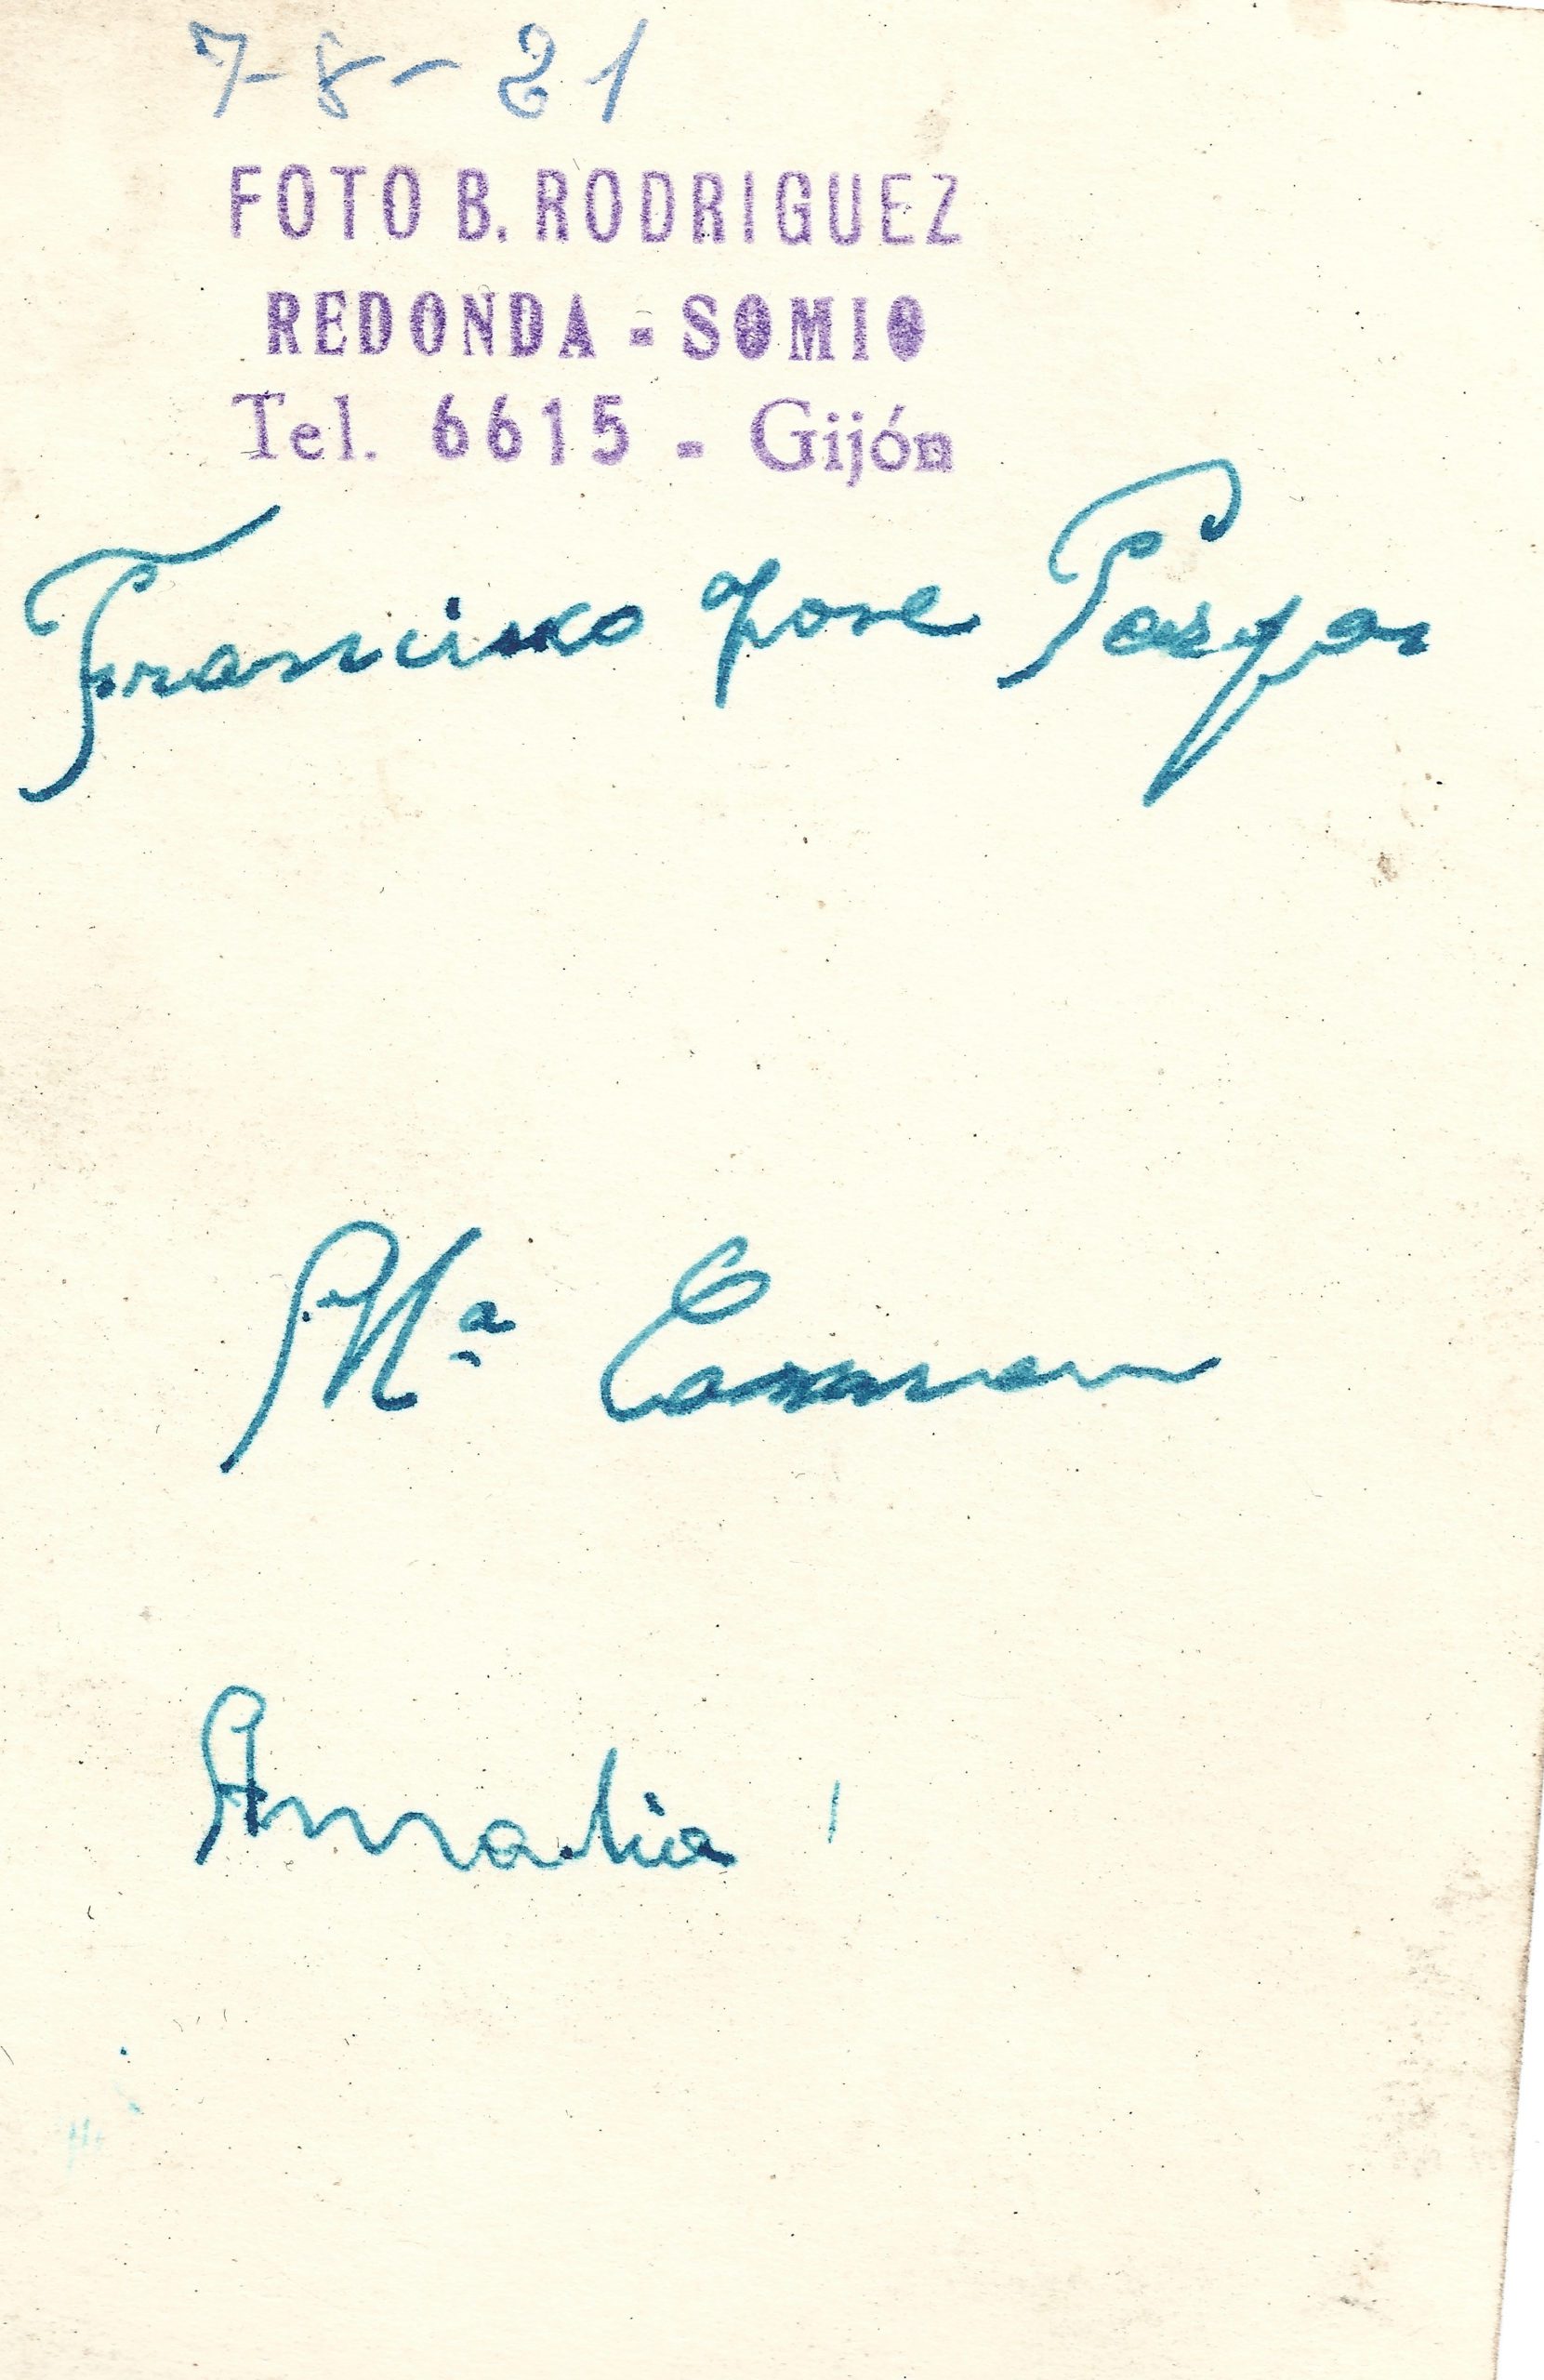 7-8-21
FOTO B. RODRIGUEZ
REDONDA - SOMIO
Tel. 6615 - Gijón
Francisco Jose
Mª Carmen
Amalia